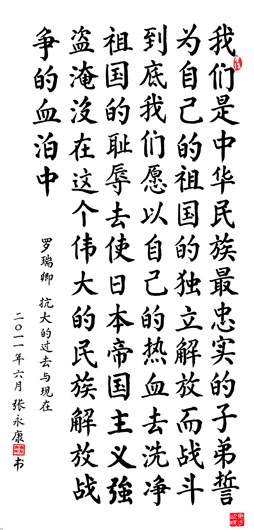 我们是中华民族最忠实的子弟誓
为自己的祖国的独立解放而战斗
到底我们愿以自己的热血去洗净
祖国的耻辱去使日本帝国主义強
盗淹没在这个伟大的民族解放战
争的血泊中
罗瑞卿 抗大的过去与现在
二〇一一年六月 张永康 书